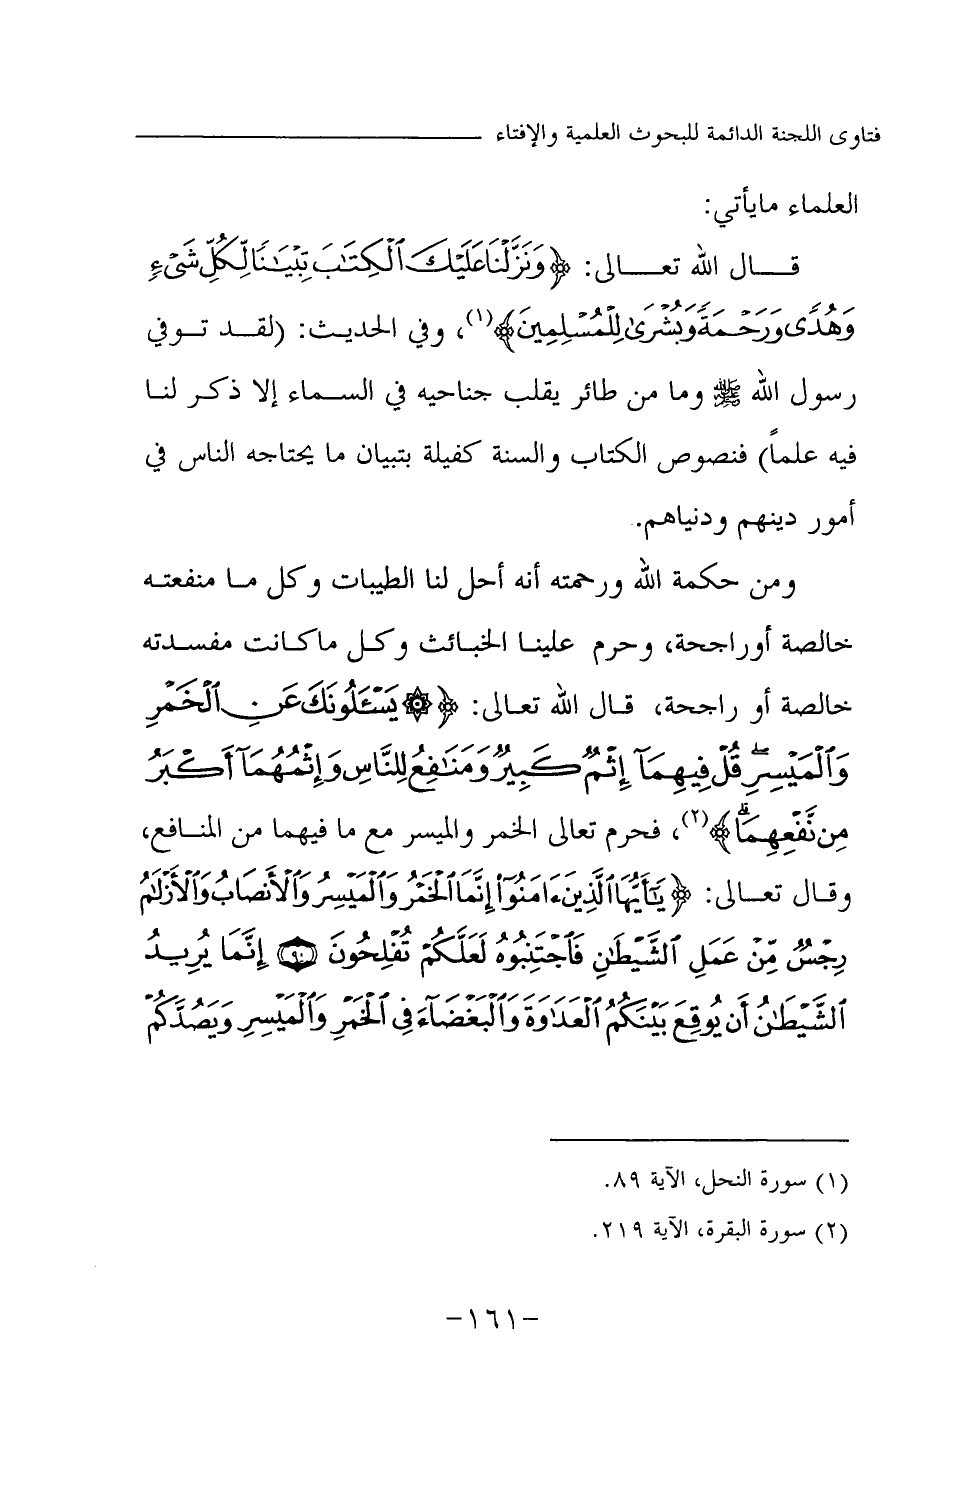 فتاوى اللجنة الدائمة للبحوث العلمية والإفتاء
العلماء مايأتي:
قال الله تعالى: ﴿وَنَزَّلْنَا عَلَيْكَ ٱلْكِتَٰبَ تِبْيَٰنًا لِّكُلِّ شَىْءٍ
وَهُدًى وَرَحْمَةً وَبُشْرَىٰ لِلْمُسْلِمِينَ﴾(١)، وفي الحديث: (لقد توفي
رسول الله ﷺ وما من طائر يقلب جناحيه في السماء إلا ذكر لنا
فيه علماً) فنصوص الكتاب والسنة كفيلة بتبيان ما يحتاجه الناس في
أمور دينهم ودنياهم.
ومن حكمة الله ورحمته أنه أحل لنا الطيبات وكل ما منفعته
خالصة أوراجحة، وحرم علينا الخبائث وكل ماكانت مفسدته
خالصة أو راجحة، قال الله تعالى: ﴿۞ يَسْـَٔلُونَكَ عَنِ ٱلْخَمْرِ
وَٱلْمَيْسِرِ ۖ قُلْ فِيهِمَآ إِثْمٌ كَبِيرٌ وَمَنَٰفِعُ لِلنَّاسِ وَإِثْمُهُمَآ أَكْبَرُ
مِن نَّفْعِهِمَا ۗ﴾(٢)، فحرم تعالى الخمر والميسر مع ما فيهما من المنافع،
وقال تعالى: ﴿يَٰٓأَيُّهَا ٱلَّذِينَ ءَامَنُوٓا۟ إِنَّمَا ٱلْخَمْرُ وَٱلْمَيْسِرُ وَٱلْأَنصَابُ وَٱلْأَزْلَٰمُ
رِجْسٌ مِّنْ عَمَلِ ٱلشَّيْطَٰنِ فَٱجْتَنِبُوهُ لَعَلَّكُمْ تُفْلِحُونَ ٩٠ إِنَّمَا يُرِيدُ
ٱلشَّيْطَٰنُ أَن يُوقِعَ بَيْنَكُمُ ٱلْعَدَٰوَةَ وَٱلْبَغْضَآءَ فِى ٱلْخَمْرِ وَٱلْمَيْسِرِ وَيَصُدَّكُمْ
(١) سورة النحل، الآية ٨٩.
(٢) سورة البقرة، الآية ٢١٩.
-١٦١-